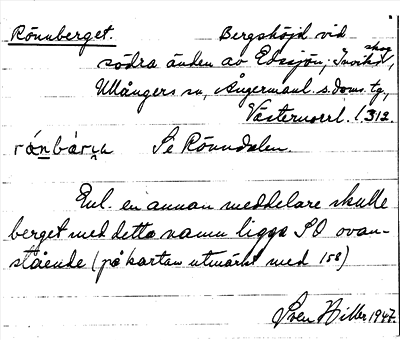 Rönnberget. Bergshöjd vid
södra änden av Edssjön, skog
Ullångers sn, Ångermanl. s. doms. tg,
Västernorrl. l 312.
Se Rönndalen.
Enl. en annan meddelare skulle
berget med detta namn ligga SO ovan-
stående (på kartan utmärkt med 158)
Sven Hiller 1947.